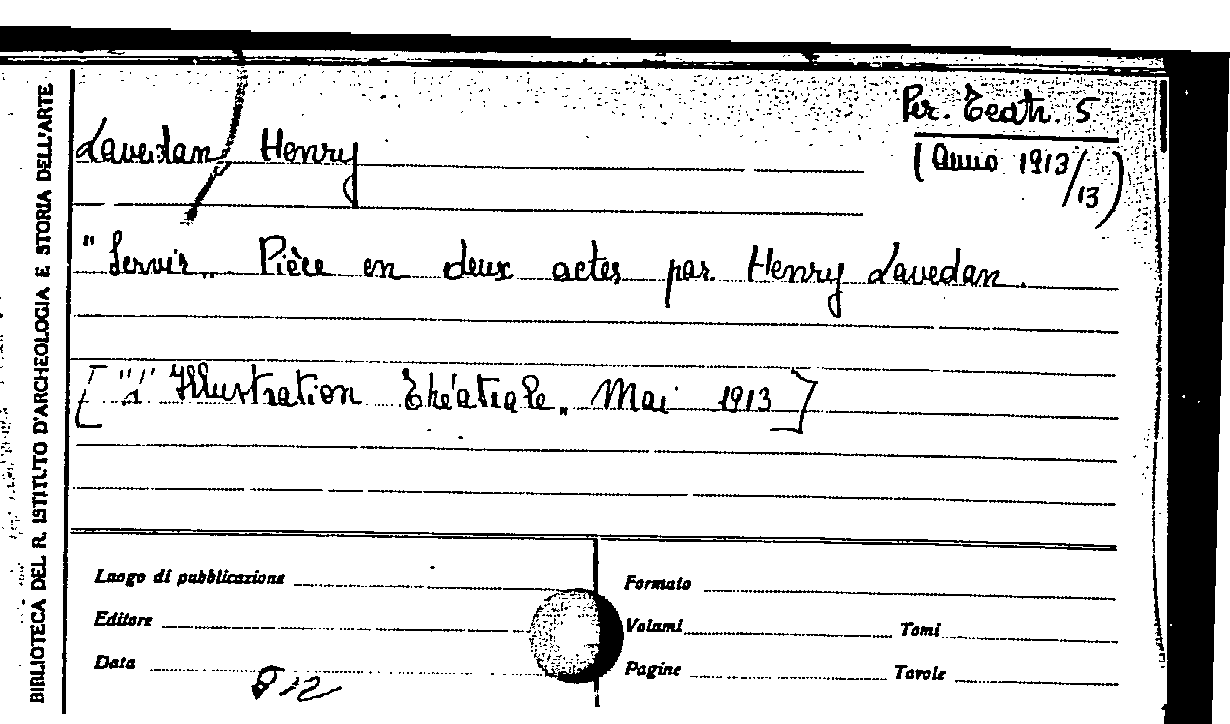 BIBLIOTECA DEL R. ISTITUTO D'ARCHEOLOGIA E STORIA DELL'ARTE
Per. Teatr. 5
(Anno 1913/13)
Lavedan, Henry
"Servir„ Pièce en deux actes par Henry Lavedan.
["L'Illustration Théatrale„ Mai 1913]
Luogo di pubblicazione
Formato
Editore
Volumi Tomi
Data
Pagine Tavole